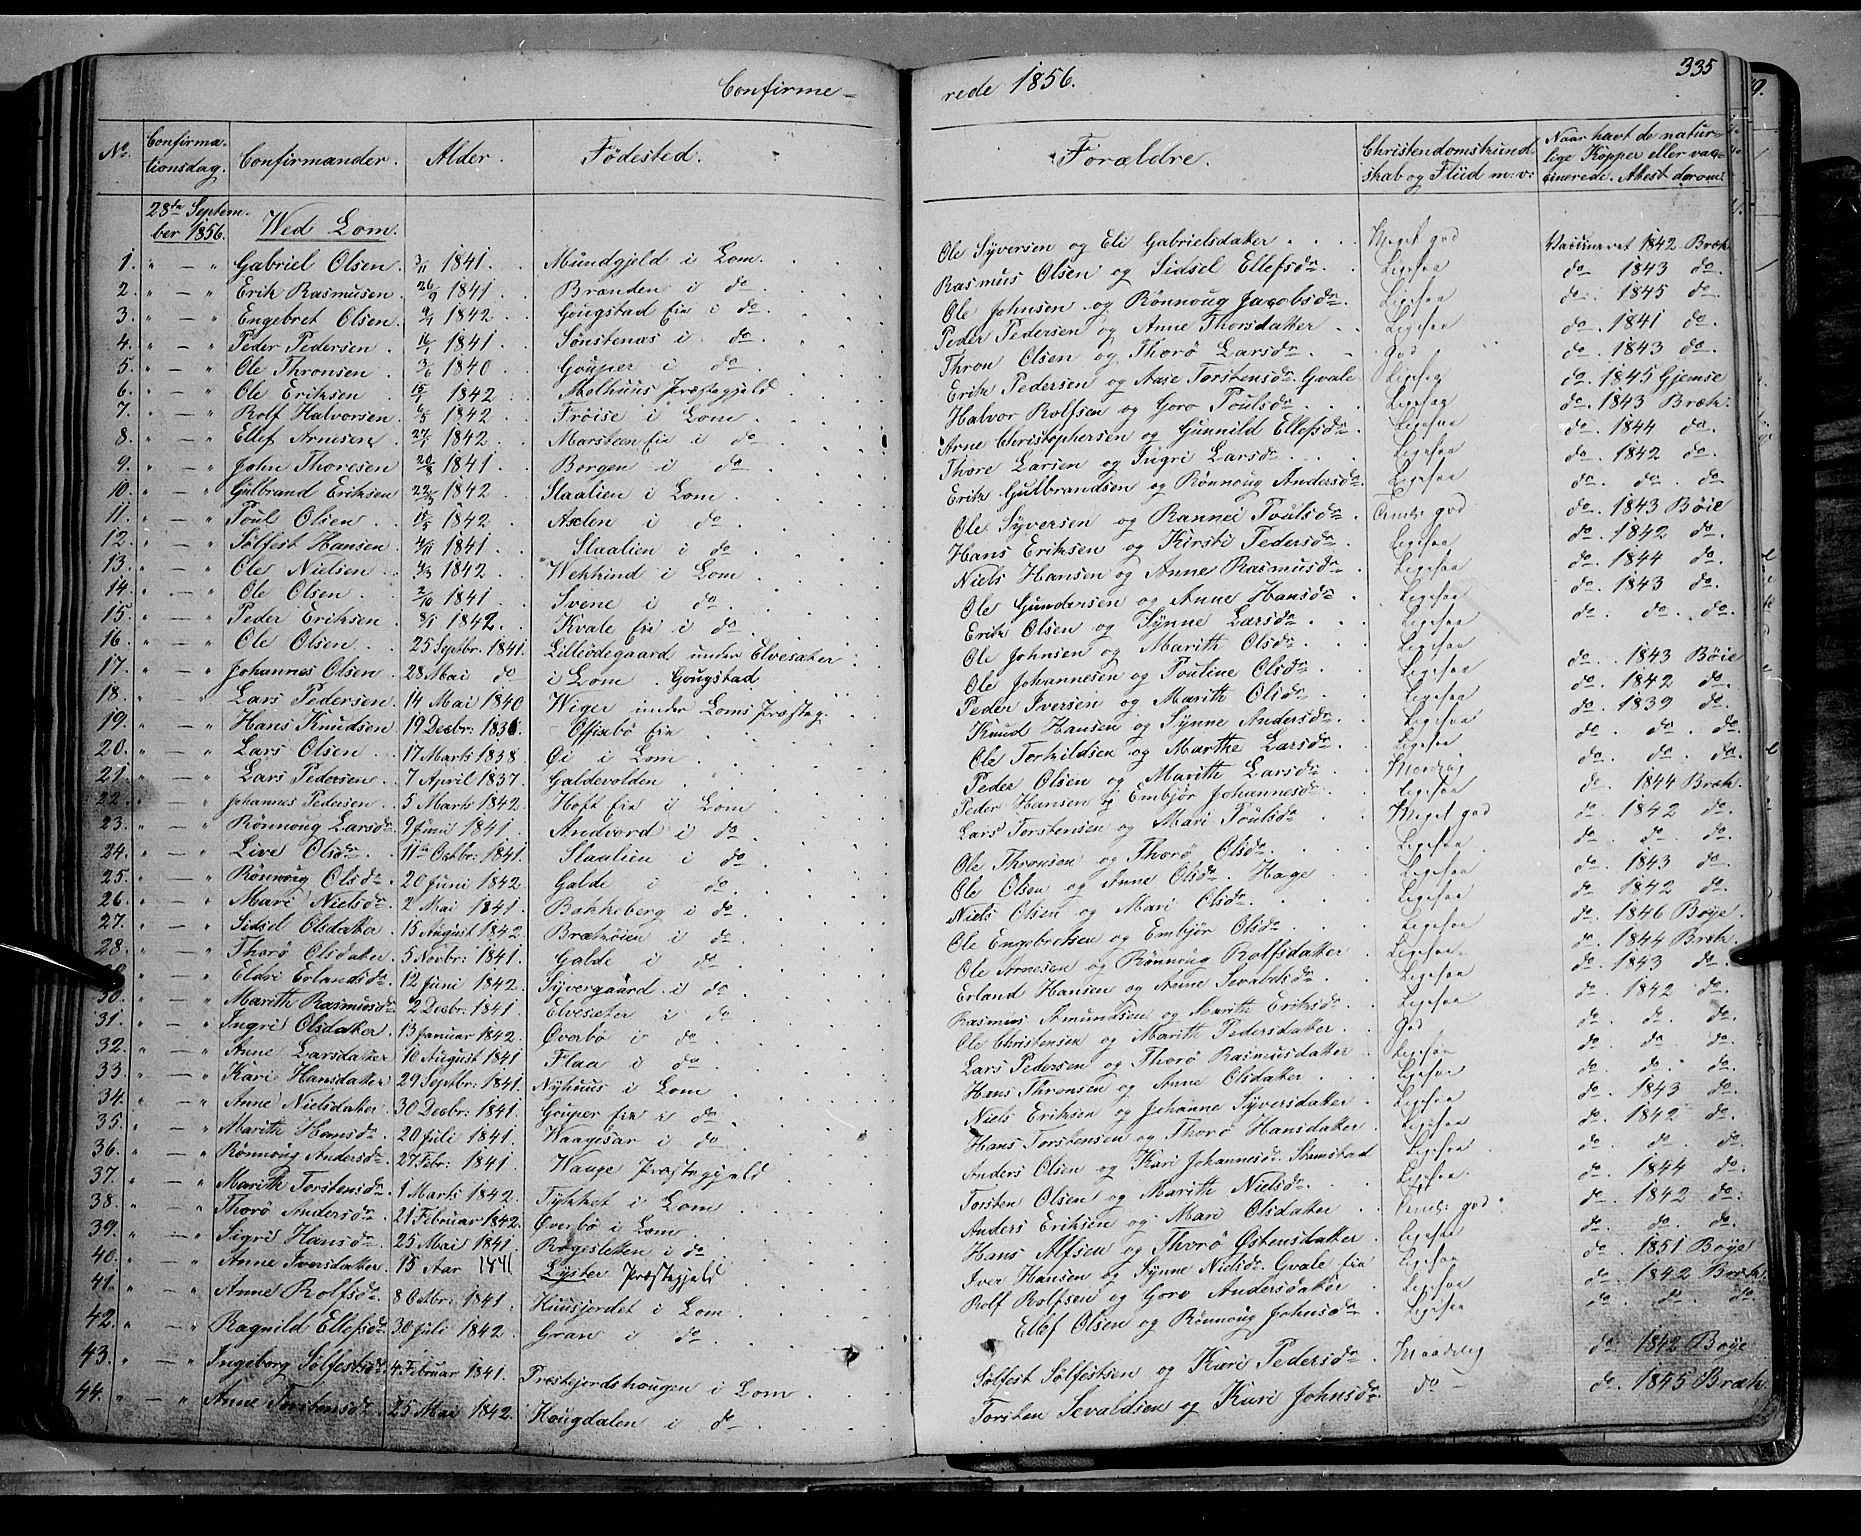 Confirme- rede 1856. 335
No. Confirma-tionsdag. Confirmander. Alder. Fødested. Forældre. Christendomskund-skab og Flid m: v: Naar havt de natur-lige Kopper eller vac-cinerede. Attest derom.
28de Septem-ber 1856. Wed Lom.
1. " — " Gabriel Olsen 3/11 1841. Mundgjeld i Lom. Ole Syversen og Eli Gabrielsdatter. Meget god Vaccineret 1842 Bræk.
2. " — " Erik Rasmusen 26/9 1841. Brænden i do Rasmus Olsen og Sidsel Ellefsdr. Ligesaa do 1843 do
3. " — " Engebret Olsen 1842. Gougstad eie i do Ole Johnsen og Rønnoug Jacobsdr. Ligesaa do. 1845 do
4. " — " Peder Pedersen 1841. Sønstenæs i do Peder Pedersen og Anne Thorsdatter Ligesaa do. 1841 do
5. " — " Ole Thronsen 3/6 1840 Gouper i do Thron Olsen og Thorø Larsdr God do. 1843 do.
6. " — " Ole Eriksen 1842 Melhuus Præstegjeld Erik Pedersen og Aase Torstensdr. Gvale Ligesaa do. 1845 Gjemse
7. " — " Rolf Halvorsen 6/5 1842. Frøise i Lom Halvor Rolfsen og Goro Poulsdr. Ligesaa do. 1843 Bræk.
8. " — " Ellef Arnesen 1842. Marsteen eie i do Arne Christophersen og Gunnild Ellefsdr. Ligesaa do. 1844 do
9. " — " John Thoresen 20/8 1841. Borgen i do Thore Larsen og Ingri Larsdr Ligesaa do. 1842 do.
10. " — " Gulbrand Eriksen 22/3 1842. Slaalien i Lom Erik Gulbrandsen og Rønnoug Andersdr. Ligesaa do. do. do
11. " — " Poul Olsen 15/5 1842. Axlen i do Ole Syversen og Rannei Poulsdr. god do. 1843 Bøie
12. " — " Sølfest Hansen 4/11 1841. Slaalien i do Hans Eriksen og Kirsti Pedersdr Ligesaa do. 1842 do.
13. " — " Ole Nielsen 4/3 1842. Wekkind i Lom Niels Hansen og Anne Rasmusdr Ligesaa do. 1844 do.
14. " — " Ole Olsen 2/10 1841. Svene i do Ole Gundersen og Anne Hansdr Ligesaa do. 1843 do.
15. " — " Peder Eriksen 8/1 1842. Kvale eie i do Erik Olsen og Synne Larsdr Ligesaa do. do. do.
16. " — " Ole Olsen 25 Septbr. 1841. Lilleødegaard under Elvesæter Ole Johnsen og Marith Olsdr Ligesaa
17. " — " Johannes Olsen 28 Mai do i Lom. Gougstad Ole Johannesen og Pouline Olsdr Ligesaa do. 1843 Bøie
18. " Lars Pedersen 14 Mai 1840 Wiger under Loms Præsteg. Peder Iversen og Marith Olsdr Ligesaa do. 1842 do.
19. " — " Hans Knudsen 19 Decbr: 1836. Offixbø eie Knud Hansen og Synne Andersdr Ligesaa do. 1839 do.
20. " — " Lars Olsen 17 Marts 1838 Øi i Lom Ole Torkildsen og Marthe Larsdr Ligesaa do. do. do.
21. " — " Lars Pedersen 7 April 1837. Galdevolden Peder Olsen og Marith Larsdr do. do. do.
22. " — " Johannes Pedersen 5 Marts 1842. Hoft eie i Lom Peder Hansen og Embjør Johannesdr Ligesaa do. 1844 Bræk.
23. " — " Rønnoug Larsdr 9 Juni 1841. Andvord i do Lars Torstensen og Mari Poulsdr Meget god do. 1842 do.
24. " — " Live Olsdr. 11te Octbr: 1841. Slaalien i do Ole Thronsen og Thorø Olsdr. Ligesaa do. do. do.
25. " — " Rønnoug Olsdr 20 Juni 1842. Galde i do Ole Olsen og Anne Olsdr. Hage Ligesaa do. 1843 do
26. " — " Mari Nielsdr. 2 Mai 1841. Bakkeberg i do Niels Olsen og Mari Olsdr. Ligesaa do. 1842 do.
27. " — " Sidsel Olsdatter 15 August 1842. Brætøien i do Ole Engebretsen og Embjør Olsdr Ligesaa do. 1846 Bøye.
28. " — " Thorø Olsdatter 5 Novbr: 1841. Galde i do Ole Arnesen og Rønnoug Rolfsdatter Ligesaa do. 1844 Bræk.
29. " — " Eldvi Erlandsdr 12 Juni 1842. Syvergaard i do Erland Hansen og Anne Sevaldsdr. Ligesaa do. 1843 do.
30. " — " Marith Rasmusdr 2 Decbr. 1841. Elvesæter i do Rasmus Amundsen og Marith Eriksdr. Ligesaa do. 1842 do.
31. " — " Ingri Olsdatter 13 Januar 1842. Øverbø i do Ole Christensen og Marith Pedersdatter God do. do. do.
32. " — " Anne Larsdatter 10 August 1841. Flaa i do Lars Pedersen og Thorø Rasmusdatter Ligesaa do. do. do.
33. " — " Kari Hansdatter 29 Septbr: 1841. Nyhuus i Lom Hans Thronsen og Anne Olsdatter Ligesaa do. do. do.
34. " — " Anne Nielsdatter 30 Decbr: 1841. Gouper eie i do Niels Eriksen og Johanne Syversdatter Ligesaa do. 1843 do.
35. " — " Marith Hansdr 20 Juli 1841. Waagesar i do Hans Torstensen og Thorø Hansdatter Ligesaa do. 1842 do.
36. " — " Rønnoug Andersdr. 27 Febr: 1841. Waage Præstegjeld Anders Olsen og Kari Johannesdr. Stamstad Ligesaa do. do. do.
37. " — " Marith Torstensdr 1 Marts 1842. Tykket i Lom Torsten Olsen og Marith Nielsdr. Ligesaa do. 1844 do.
38. " — " Thorø Andersdr 21 Februar 1842. Øverbø i Lom Anders Eriksen og Mari Olsdatter god do. 1842 do.
39. " — " Sigri Hansdr. 25 Mai 1841. Røgesletten i do Hans Alfsen og Thorø Østensdatter Ligesaa do. do. do.
40. " — " Anne Iversdatter 15 Aar 1841 Lyster Præstegjeld Iver Hansen og Synne Nielsdr. Gvale eie Ligesaa do. 1851 Bøye
41. " — " Anne Rolfsdr. 8 Octbr: 1841. Huusjordet i Lom Rolf Rolfsen og Goro Andersdatter Ligesaa do. 1842 Bræk.
42. " — " Ragnild Ellefsdr. 30 Juli 1842. Gran i do Ellef Olsen og Rønnoug Johnsdr Ligesaa do. do. do.
43. " — " Ingeborg Sølfestsdr. 4 Februar 1841. Prestejordshougen i Lom Sølfest Sølfestsen og Kari Pedersdr Maadelig do 1842 Bøye
44. " — " Anne Torstensdr. 25 Mai 1842. Hougdalen i do Torsten Sevaldsen og Kari Johnsdr. do do. 1845 Bræk.